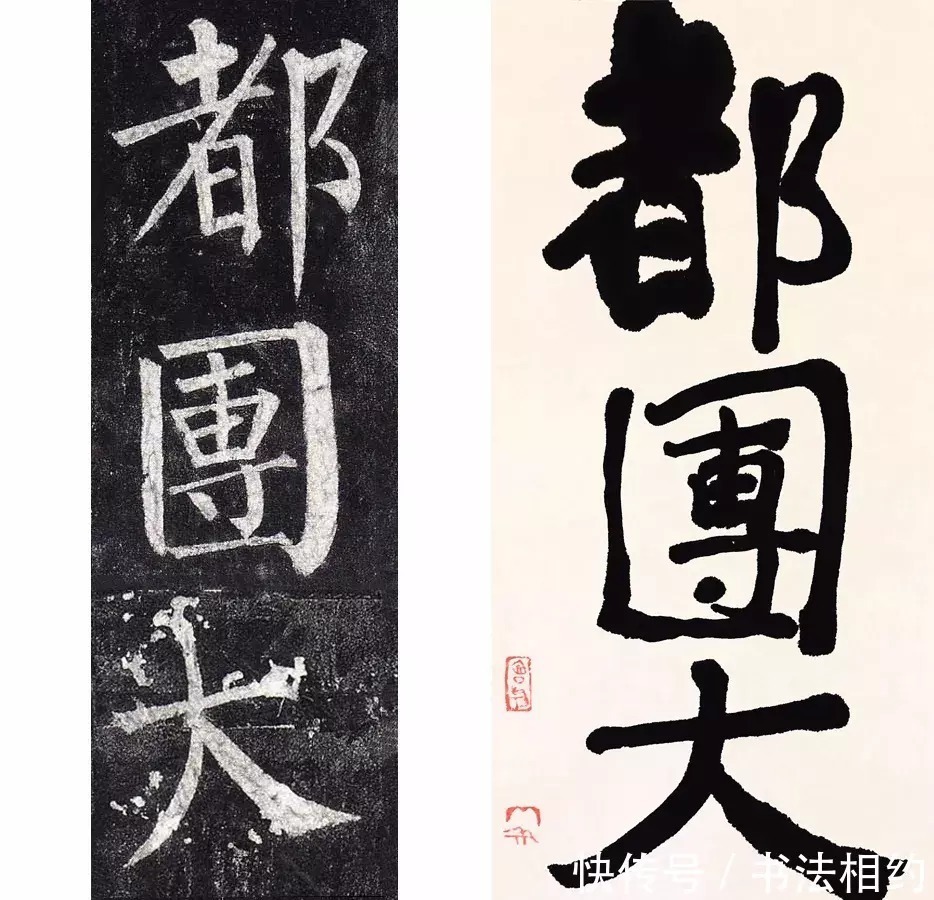 都團大
都團大
快传号 / 书法相约